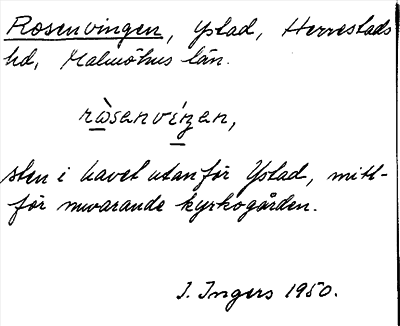 Rosenvingen, Ystad, Herrestads
hd, Malmöhus län.
rὼsenvíŋen,
sten i havet utanför Ystad, mitt-
för nuvarande kyrkogården.
I. Ingers 1950.